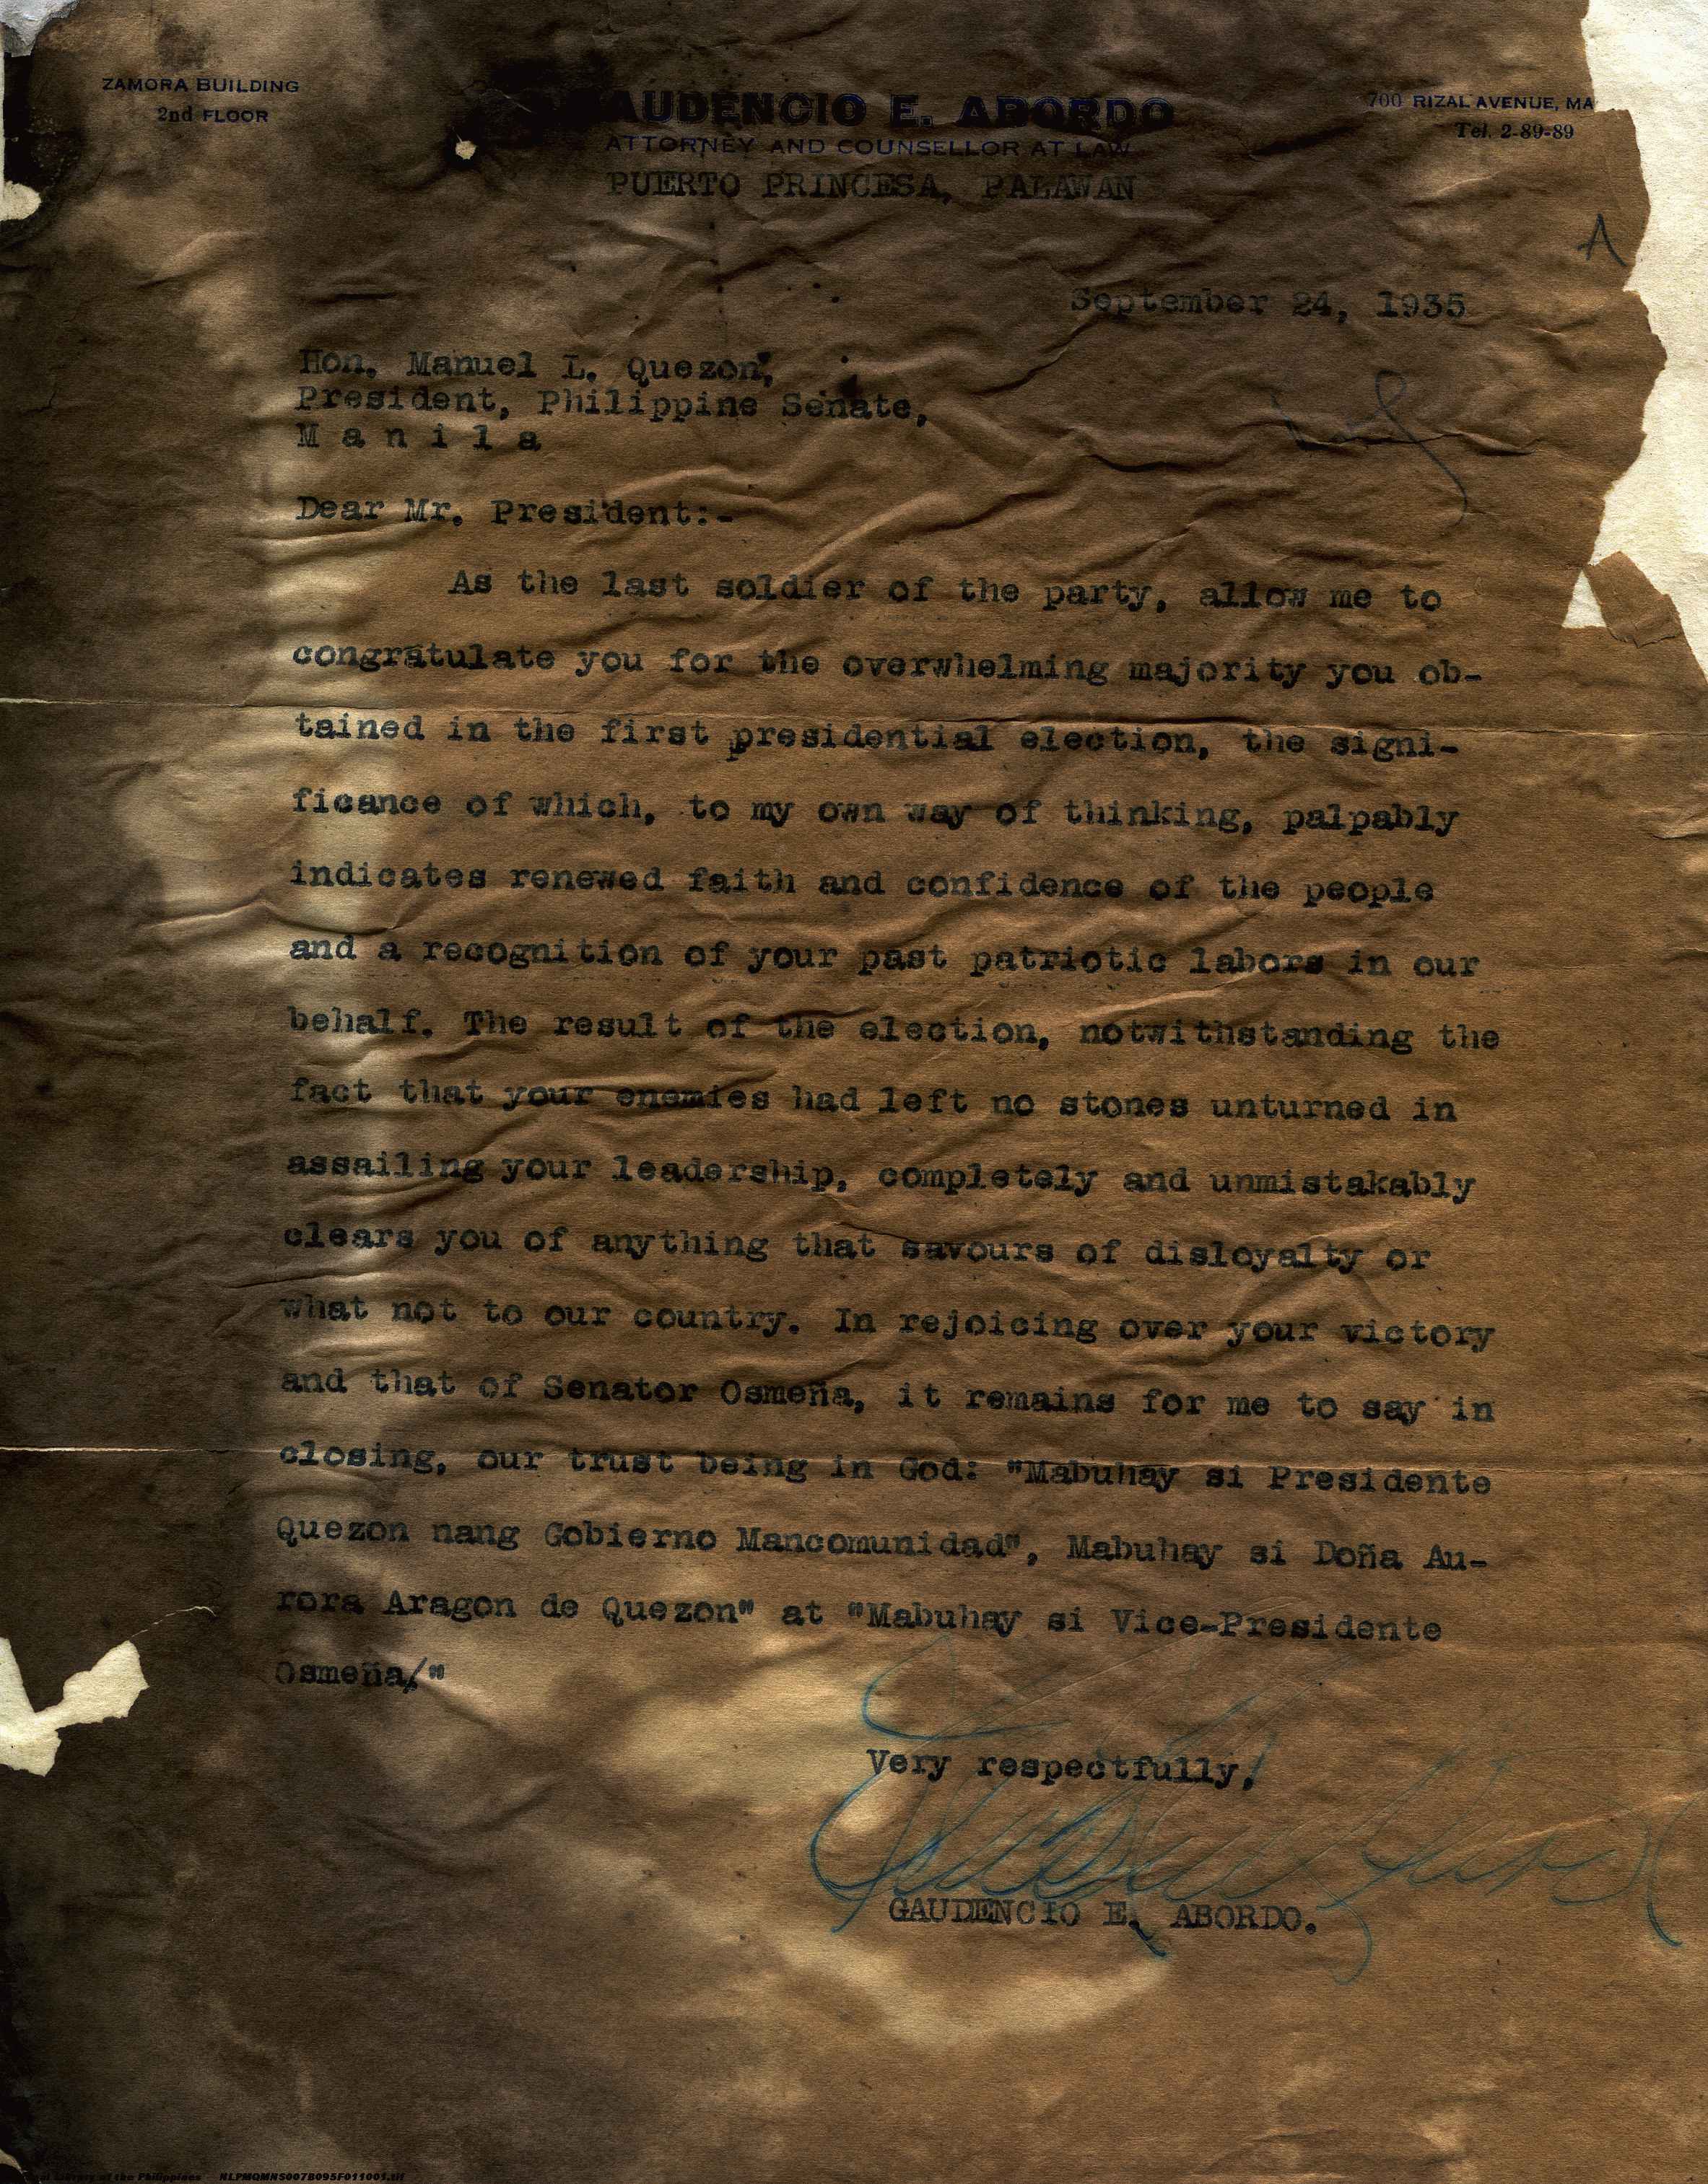 ZAMORA BUILDING
2nd FLOOR
AUDENCIO E. ABORDO
ATTORNEY AND COUNSELLOR AT LAW
PUERTO PRINCESA, PALAWAN
700 RIZAL AVENUE, MA
Tel. 2-89-89
September 24, 1935
Hon. Manuel L. Quezon,
President, Philippine Senate,
M a n i l a
Dear Mr. President:-
As the last soldier of the party, allow me to
congratulate you for the overwhelming majority you ob-
tained in the first presidential election, the signi-
ficance of which, to my own way of thinking, palpably
indicates renewed faith and confidence of the people
and a recognition of your past patriotic labors in our
behalf. The result of the election, notwithstanding the
fact that your enemies had left no stones unturned in
assailing your leadership, completely and unmistakably
clears you of anything that savours of disloyalty or
what not to our country. In rejoicing over your victory
and that of Senator Osmeña, it remains for me to say in
closing, our trust being in God: "Mabuhay si Presidente
Quezon nang Gobierno Mancomunidad", Mabuhay si Doña Au-
rora Aragon de Quezon" at "Mabuhay si Vice-Presidente
Osmeña/"
Very respectfully,
GAUDENCIO E. ABORDO.
Library of the Philippines NLPMQMNS007B095F011001.tif